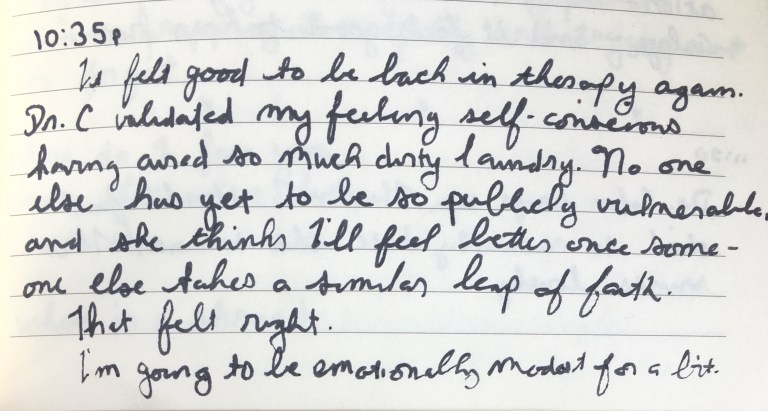 10:35p
It felt good to be back in therapy again.
Dr. C validated my feeling self-conscious
having aired so much dirty laundry. No one
else has yet to be so publicly vulnerable,
and she thinks I'll feel better once some-
one else takes a similar leap of faith.
That felt right.
I'm going to be emotionally modest for a bit.